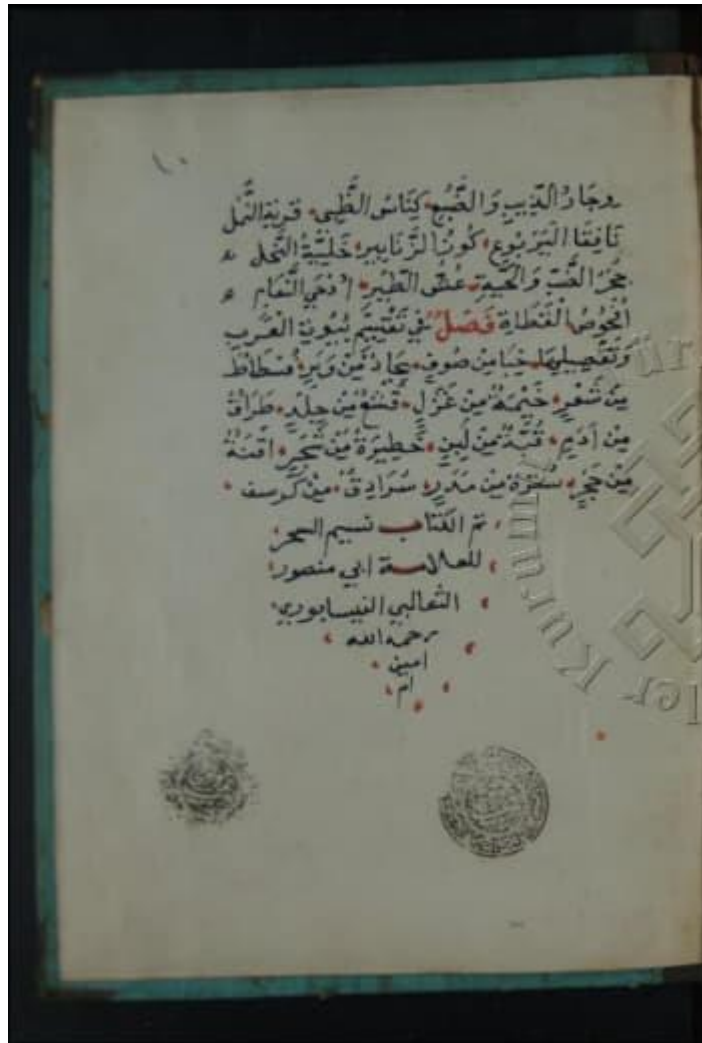 ١٠
وجَارُ الذِّيبِ وَالضَّبُعِ كِنَاسُ الظَّبْيِ قَريَةُ النَّمْلِ
نَافِقَا اليَرْبُوعِ كُورُ الزَّنَابِيرِ خَلِيَّةُ النَّحْلِ
جُحْرُ الضَّبِّ وَالحَيَّةِ عُشُّ الطَّيْرِ أُدْحِي النَّعَامِ
أُفْحُوصُ الْقَطَاةِ فَصْلٌ في تَقْسِيمِ بُيُوتِ العَرَبِ
وَتَفْصِيلِهَا خِبَا مِن صُوفٍ بِجَادٌ مِنْ وَبَرٍ فُسْطَاطٌ
مِنْ شَعَرٍ خَيْمَةٌ مِنْ غَزْلٍ قَشْعٌ مِنْ جِلْدٍ طِرَافٌ
مِنْ أَدَمٍ قُبَّةٌ مِنْ لَبِنٍ حَظِيرَةٌ مِنْ شَجَرٍ أُقْنَةٌ
مِنْ حَجَرٍ سُتْرَةٌ مِنْ مَدَرٍ سُرَادِقٌ مِنْ كُرسف
تم الكتاب نسيم السحر
للعلامة ابي منصور
الثعالبي النيسابوري
رحمه الله
امين
ام